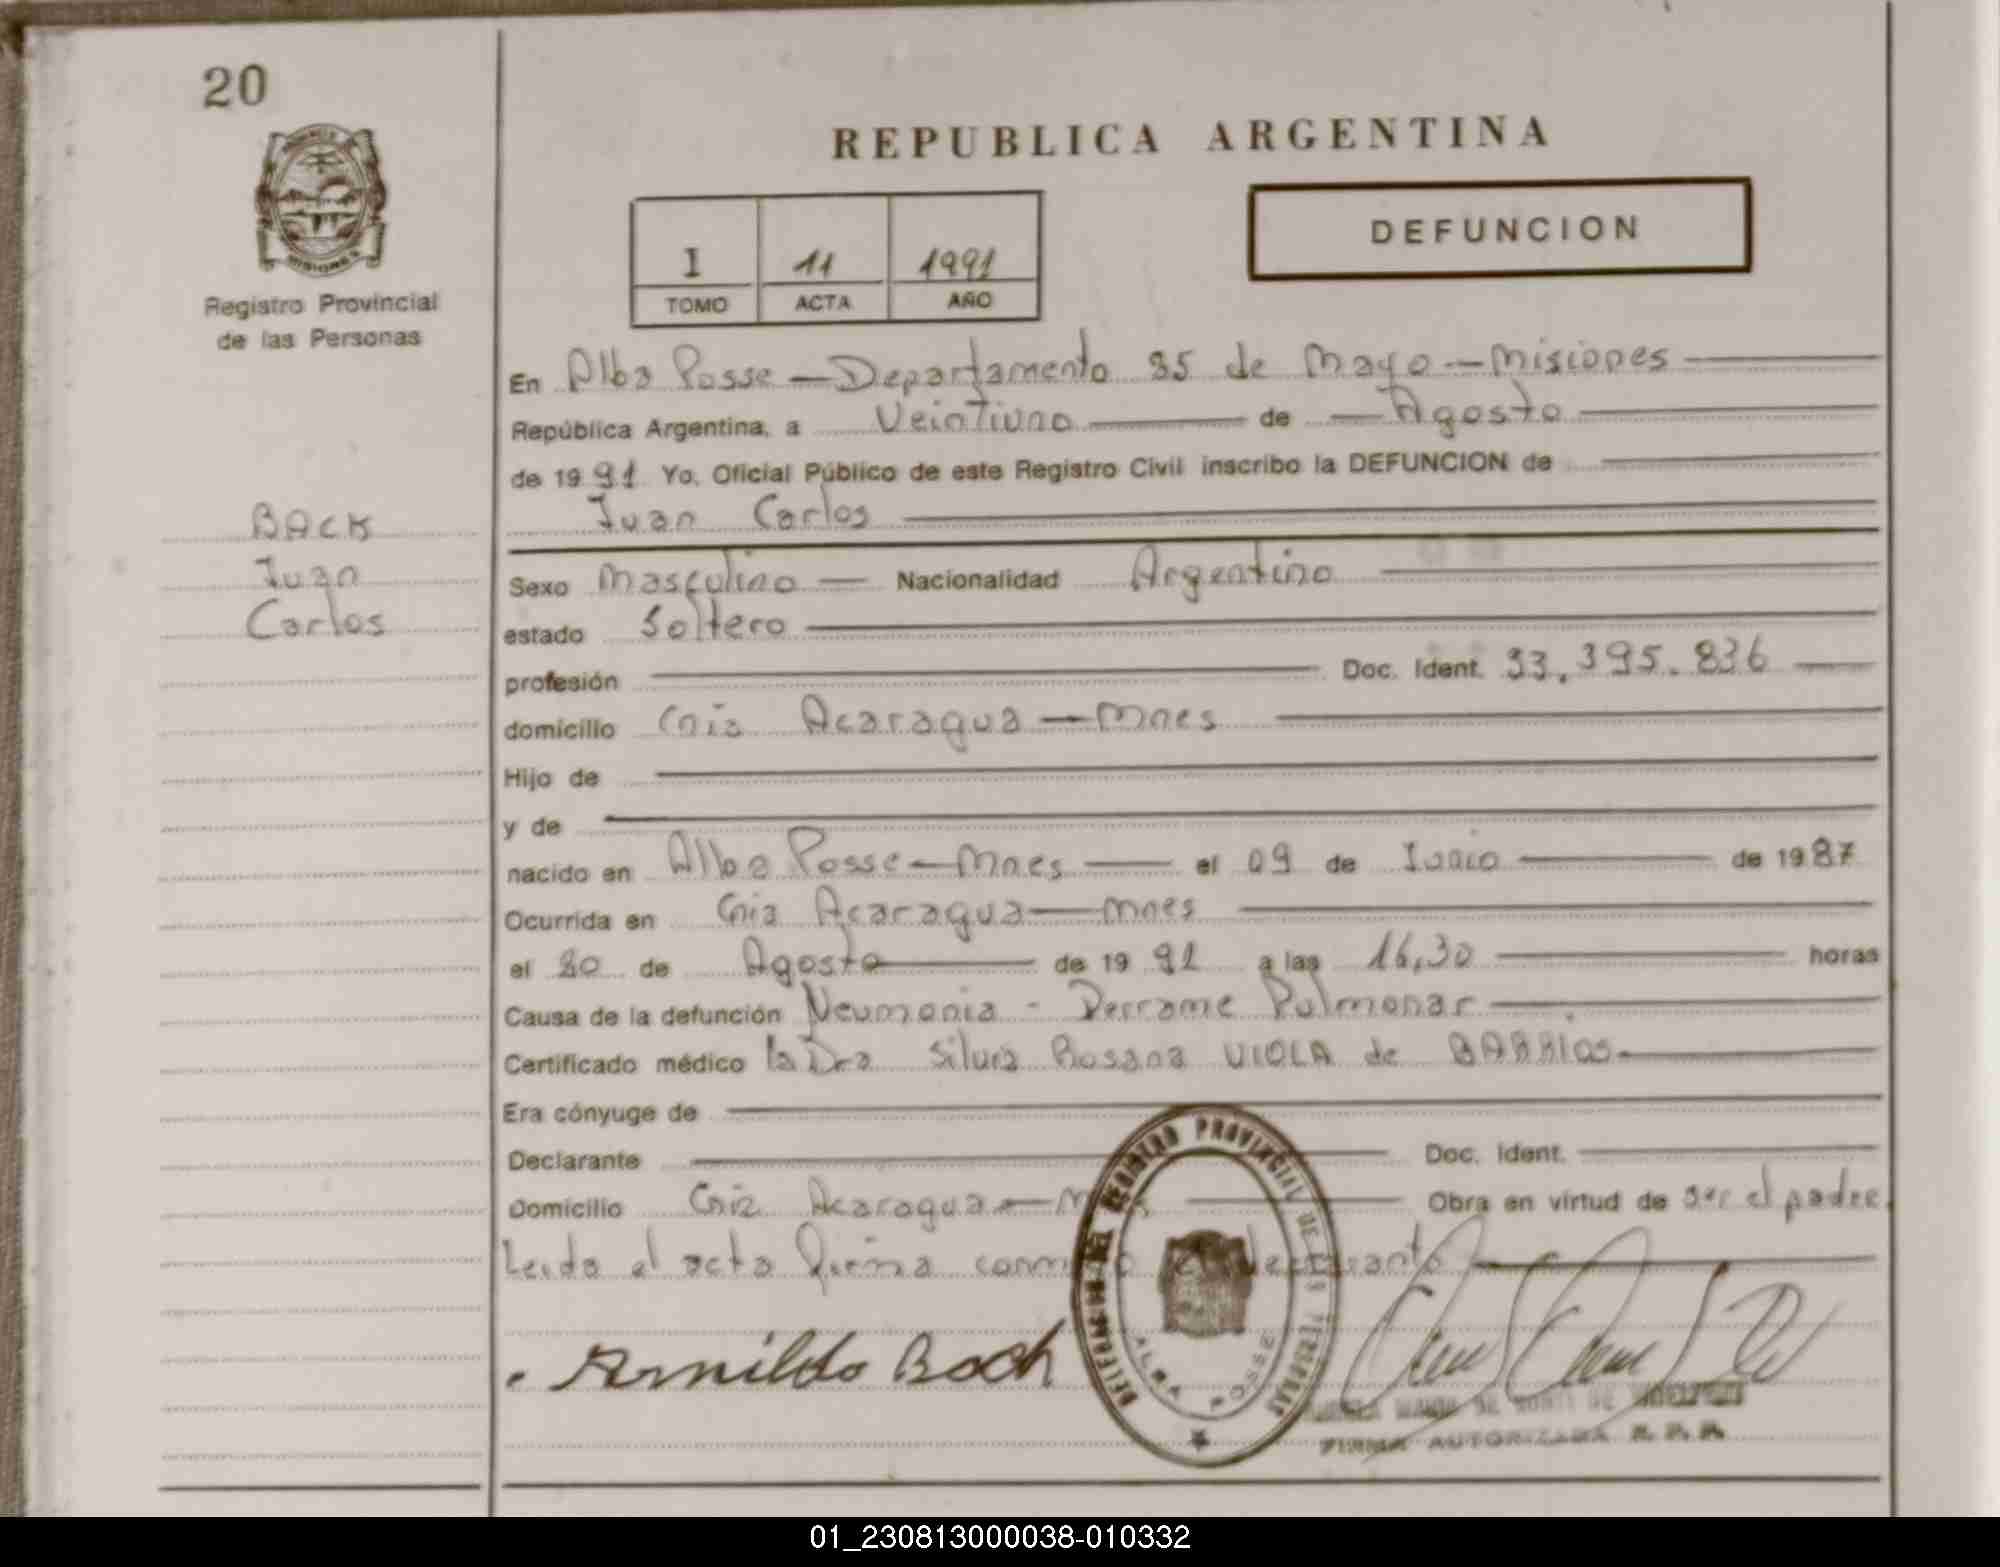 20
Registro Provincial
de las Personas
REPUBLICA ARGENTINA
DEFUNCION
I 11 1991
TOMO ACTA AÑO
En Alba Posse — Departamento 25 de Mayo — Misiones
República Argentina, a Veintiuno de Agosto
de 1991 Yo, Oficial Público de este Registro Civil inscribo la DEFUNCION de
Juan Carlos
BACK
Juan
Carlos
Sexo Masculino — Nacionalidad Argentino
estado Soltero
profesión Doc. Ident. 33.395.836
domicilio Cnia Acaragua — Mnes
Hijo de
y de
nacido en Alba Posse — Mnes el 09 de Junio de 1987
Ocurrida en Cnia Acaragua — Mnes
el 20 de Agosto de 1991 a las 16,30 horas
Causa de la defunción Neumonia - Derrame Pulmonar
Certificado médico la Dra Silvia Rosana VIOLA de BARRIOS
Era cónyuge de
Declarante Doc. Ident.
Domicilio Cnia Acaragua — Obra en virtud de ser el padre
Leida el acta firma el declarante
Arnildo Back
DELEGACION DEL REGISTRO PROVINCIAL DE LAS PERSONAS
ALBA POSSE
FIRMA AUTORIZADA R. P. P.
01_230813000038-010332